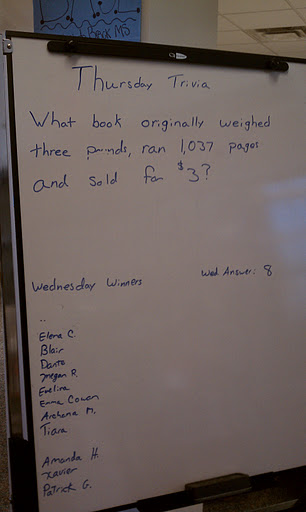 Beck MS
Thursday Trivia
What book originally weighed
three pounds, ran 1,037 pages
and sold for $3?
Wednesday Winners Wed Answer: 8
..
Elena C.
Blair
Dante
Megan R.
Evelina
Emma Cowen
Archana M.
Tiara
Amanda H.
Xavier
Patrick G.